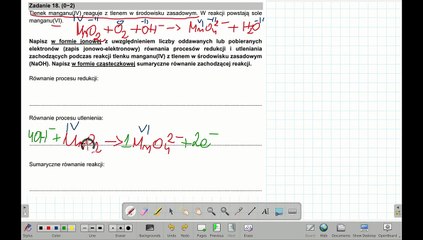 Zadanie 18. (0–2)
Tlenek manganu(IV) reaguje z tlenem w środowisku zasadowym. W reakcji powstają sole
manganu(VI).
IV 0 -II VI -II -II
MnO₂ + O₂ + OH⁻ → MnO₄²⁻ + H₂O
Napisz w formie jonowej z uwzględnieniem liczby oddawanych lub pobieranych
elektronów (zapis jonowo-elektronowy) równania procesów redukcji i utleniania
zachodzących podczas reakcji tlenku manganu(IV) z tlenem w środowisku zasadowym
(NaOH). Napisz w formie cząsteczkowej sumaryczne równanie zachodzącej reakcji.
Równanie procesu redukcji:
Równanie procesu utleniania:
IV VI
4OH⁻ + MnO₂ → 1 MnO₄²⁻ + 2e⁻
Sumaryczne równanie reakcji:
Backgrounds
Undo
Redo
Previous
Pages
Next
Erase
Desktop
Show Desktop